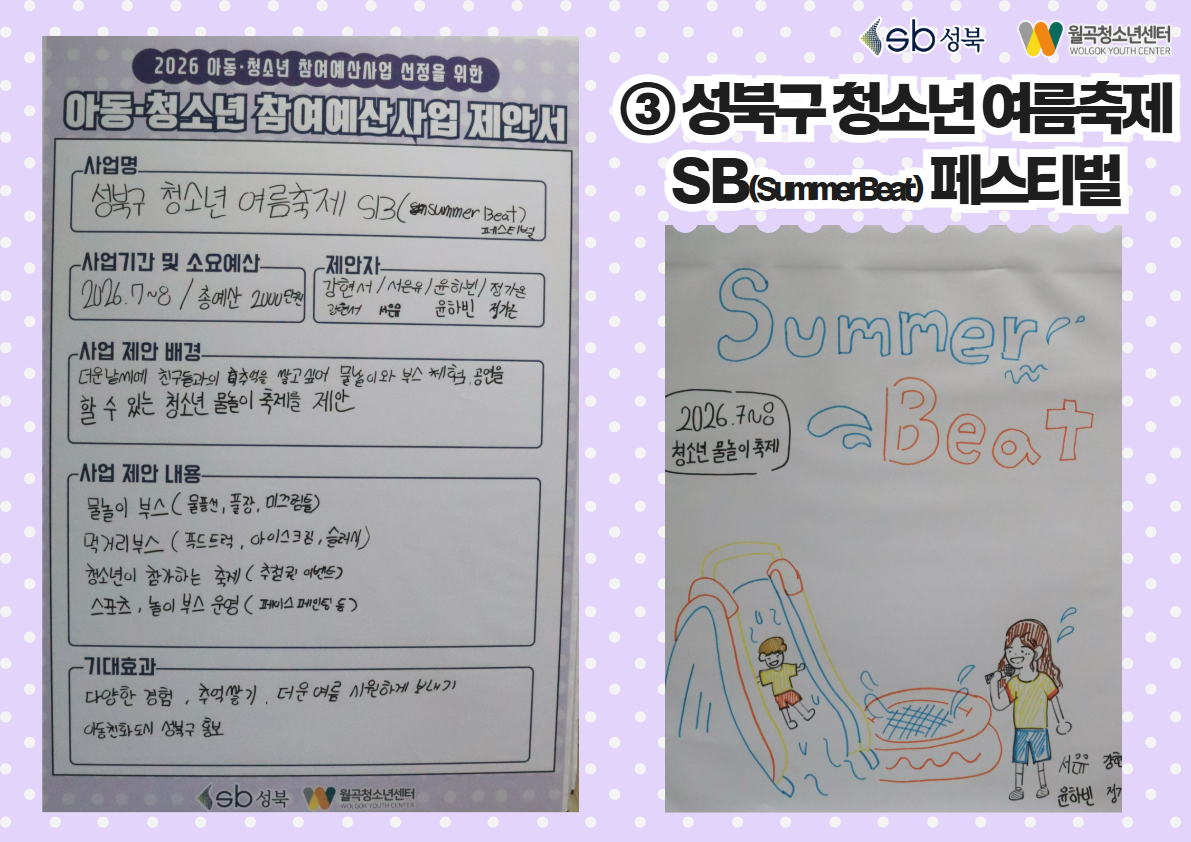 2026 아동·청소년 참여예산사업 선정을 위한
아동·청소년 참여예산사업 제안서
사업명
성북구 청소년 여름축제 SB(summer Beat)
페스티벌
사업기간 및 소요예산
2026.7~8 / 총예산 2000만원
제안자
강현서 / 서은유 / 윤하빈 / 정가은
강현서 서은유 윤하빈 정가은
사업 제안 배경
더운날씨에 친구들과의 추억을 쌓고싶어 물놀이와 부스 체험, 공연을
할 수 있는 청소년 물놀이 축제를 제안
사업 제안 내용
물놀이 부스 (물풍선, 풀장, 미끄럼틀)
먹거리부스 (푸드트럭, 아이스크림, 슬러시)
청소년이 참가하는 축제 (추첨권 이벤트)
스포츠, 놀이 부스 운영 (페이스 페인팅 등)
기대효과
다양한 경험, 추억쌓기, 더운여름 시원하게 보내기
아동친화도시 성북구 홍보
sb 성북
월곡청소년센터
WOLGOK YOUTH CENTER
sb 성북
월곡청소년센터
WOLGOK YOUTH CENTER
③ 성북구 청소년 여름축제
SB(Summer Beat) 페스티벌
Summer
Beat
2026.7~8
청소년 물놀이 축제
서은유 강현
윤하빈 정가